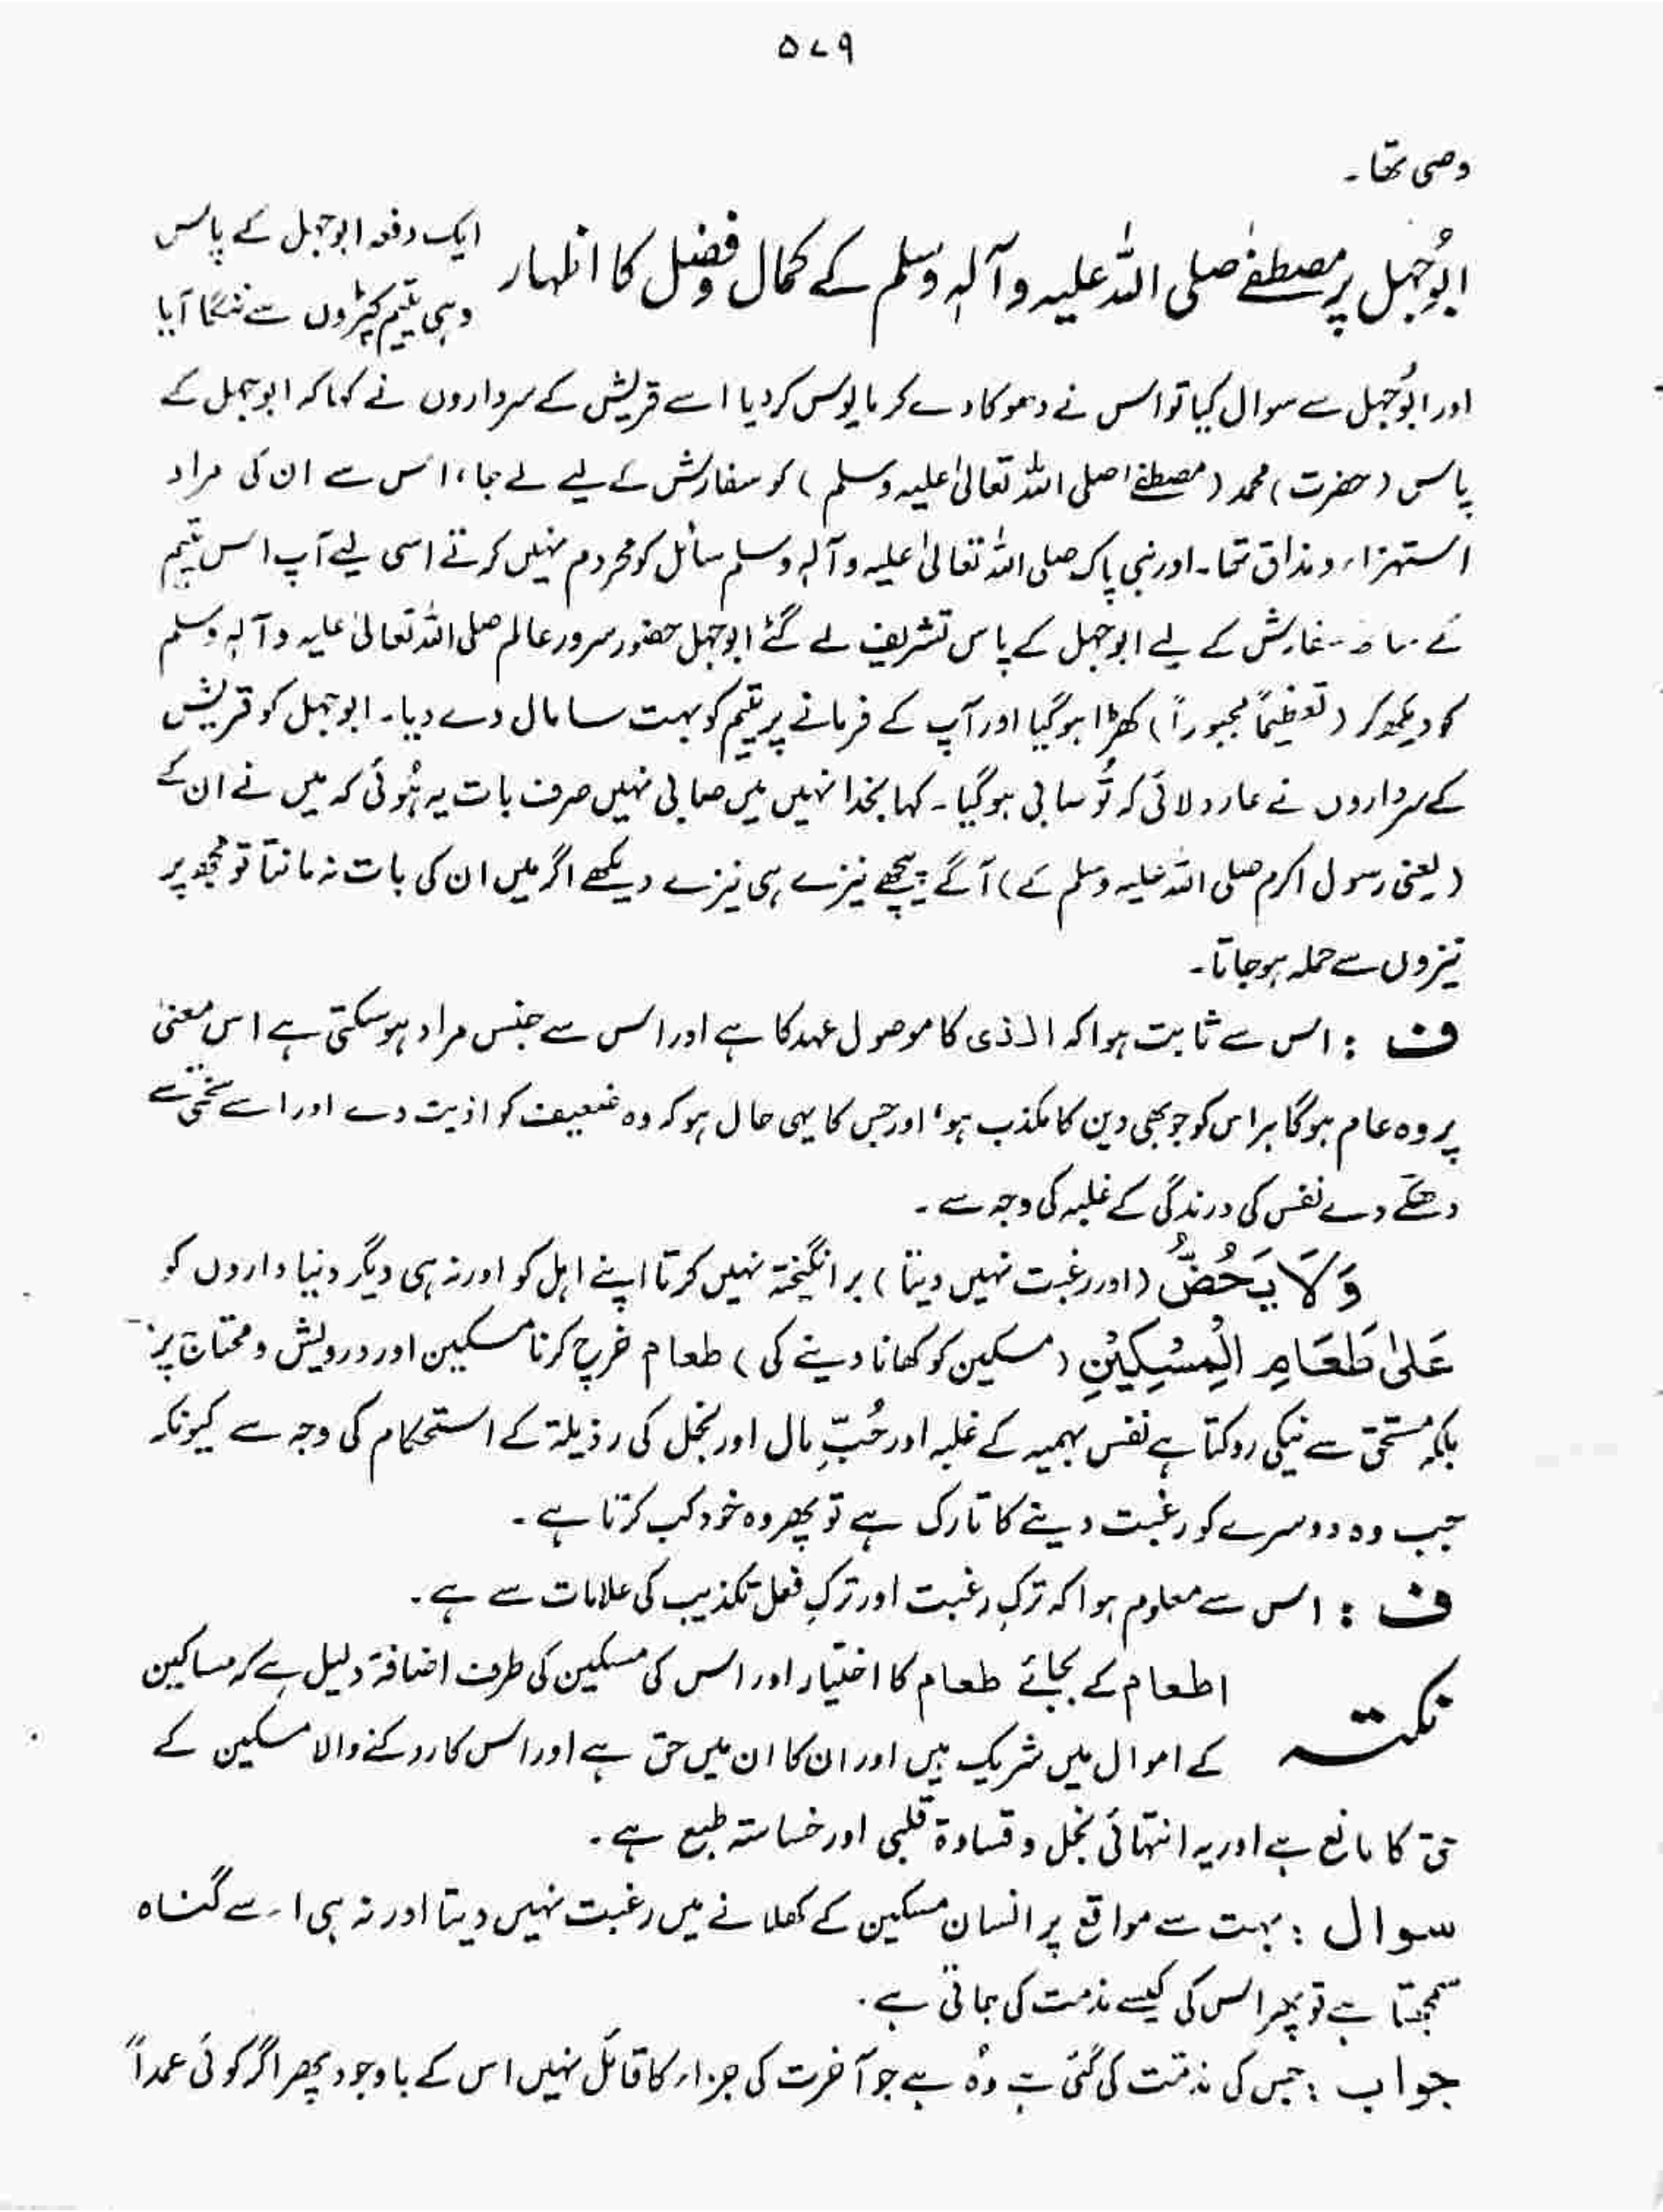 ۵۷۹
وصی تھا۔
ابُوجہل پر مصطفےٰ صلی اللہ علیہ وآلہٖ وسلم کے کمال و فضل کا اظہار
ایک دفعہ ابوجہل کے پاس
وہی یتیم کپڑوں سے ننگا آیا
اور ابُوجہل سے سوال کیا تو اس نے دھوکا دے کر مایوس کر دیا اسے قریش کے سرداروں نے کہا کہ ابوجہل کے
پاس (حضرت) محمد (مصطفےٰ صلی اللہ تعالیٰ علیہ وسلم) کو سفارش کے لیے لے جا، اس سے ان کی مراد
استہزاء و مذاق تھا۔ اور نبی پاک صلی اللہ تعالیٰ علیہ وآلہٖ وسلم سائل کو محروم نہیں کرتے اسی لیے آپ اس یتیم
کے ساتھ سفارش کے لیے ابوجہل کے پاس تشریف لے گئے ابوجہل حضور سرور عالم صلی اللہ تعالیٰ علیہ وآلہٖ وسلم
کو دیکھ کر (تعظیماً مجبوراً) کھڑا ہو گیا اور آپ کے فرمانے پر یتیم کو بہت سا مال دے دیا۔ ابوجہل کو قریش
کے سرداروں نے عار دلائی کہ تُو صابی ہو گیا۔ کہا بخدا نہیں میں صابی نہیں صرف بات یہ ہُوئی کہ میں نے ان کے
(یعنی رسول اکرم صلی اللہ علیہ وسلم کے) آگے پیچھے نیزے ہی نیزے دیکھے اگر میں ان کی بات نہ مانتا تو مجھ پر
نیزوں سے حملہ ہو جاتا۔
ف : اس سے ثابت ہوا کہ الذی کا موصول عہد کا ہے اور اس سے جنس مراد ہو سکتی ہے اس معنیٰ
پر وہ عام ہو گا ہر اس کو جو بھی دین کا مکذب ہو، اور جس کا یہی حال ہو کہ وہ ضعیف کو اذیت دے اور اسے سختی سے
دھکے دے نفس کی درندگی کے غلبہ کی وجہ سے۔
وَلَا یَحُضُّ (اور رغبت نہیں دیتا) برانگیختہ نہیں کرتا اپنے اہل کو اور نہ ہی دیگر دنیا داروں کو
عَلٰی طَعَامِ الْمِسْکِیْنِ (مسکین کو کھانا دینے کی) طعام خرچ کرنا مسکین اور درویش و محتاج پر
بلکہ مستحق سے نیکی روکتا ہے نفس بہیمیہ کے غلبہ اور حُبِّ مال اور بخل کی رذیلۃ کے استحکام کی وجہ سے کیونکہ
جب وہ دوسرے کو رغبت دینے کا تارک ہے تو پھر وہ خود کب کرتا ہے۔
ف : اس سے معلوم ہوا کہ ترکِ رغبت اور ترکِ فعل تکذیب کی علامات سے ہے۔
نکتہ اطعام کے بجائے طعام کا اختیار اور اس کی مسکین کی طرف اضافۃ دلیل ہے کہ مساکین
کے اموال میں شریک ہیں اور ان کا ان میں حق ہے اور اس کا روکنے والا مسکین کے
حق کا مانع ہے اور یہ انتہائی بخل و قساوۃ قلبی اور خساستہ طبع ہے۔
سوال : بہت سے مواقع پر انسان مسکین کے کھلانے میں رغبت نہیں دیتا اور نہ ہی اسے گناہ
سمجھتا ہے تو پھر اس کی کیسے مذمت کی جاتی ہے۔
جواب : جس کی مذمّت کی گئی ہے وُہ ہے جو آخرت کی جزاء کا قائل نہیں اس کے باوجود پھر اگر کوئی عمداً